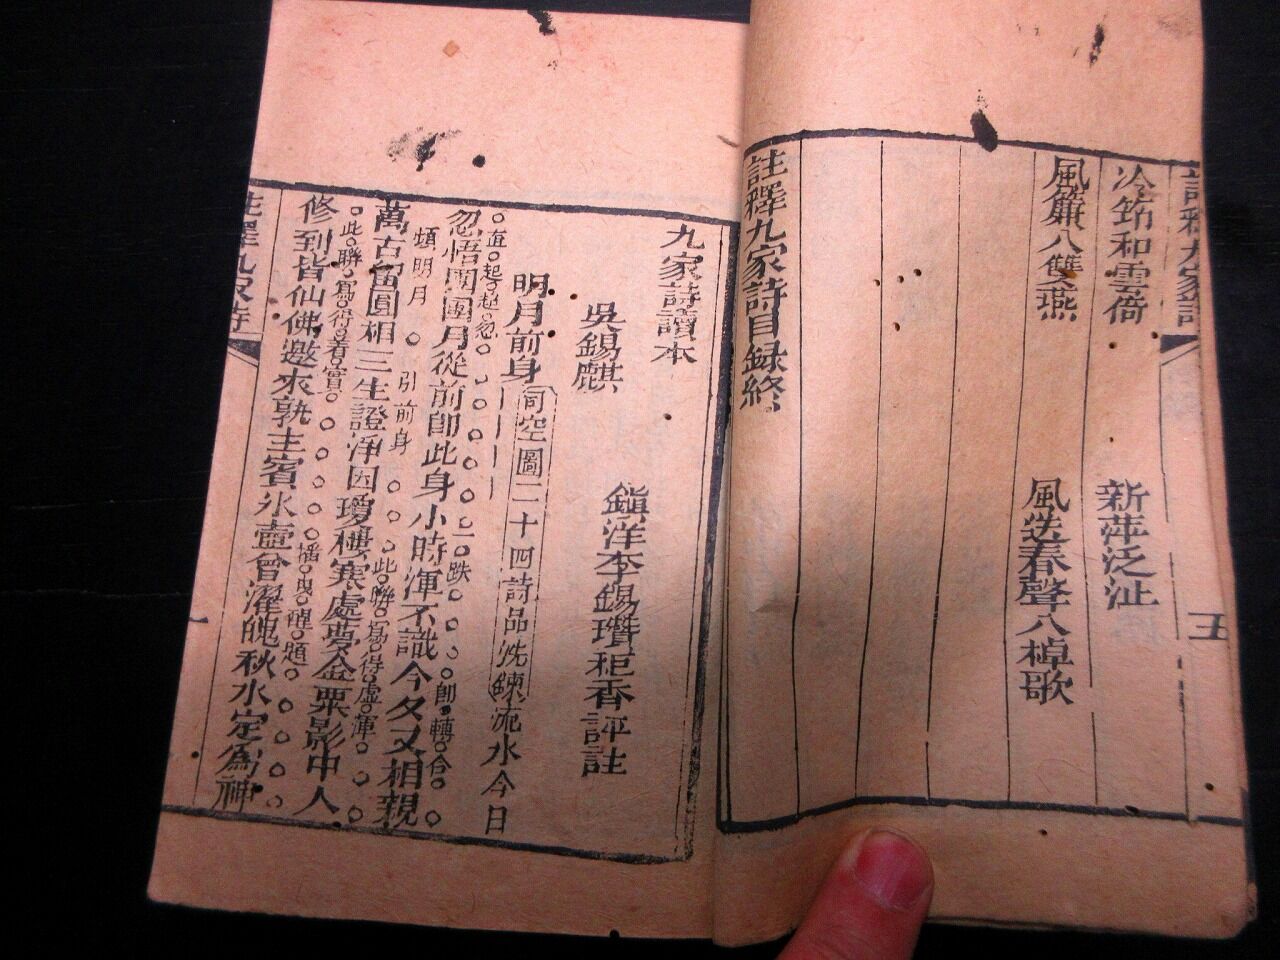 冷筎和雲倚
新萍泛沚
五
風簾八雙燕
風送春聲八棹歌
註釋九家詩目録終
九家詩讀本
吳錫麒
鎮洋李錫瓚秬香評註
明月前身
司空圖二十四詩品洗鍊流水今日
明月前身
直起起忽
忽悟團團月從前卽此身小時渾不識今夕又相親
頓明月
引前身
一跌
卽轉合
萬古留圓相三生證淨因瓊樓寒處夢金粟影中人
此聯寫得着實
此聯寫得虛渾
修到皆仙佛邀來孰主賓氷壺曾濯魄秋水定爲神
一